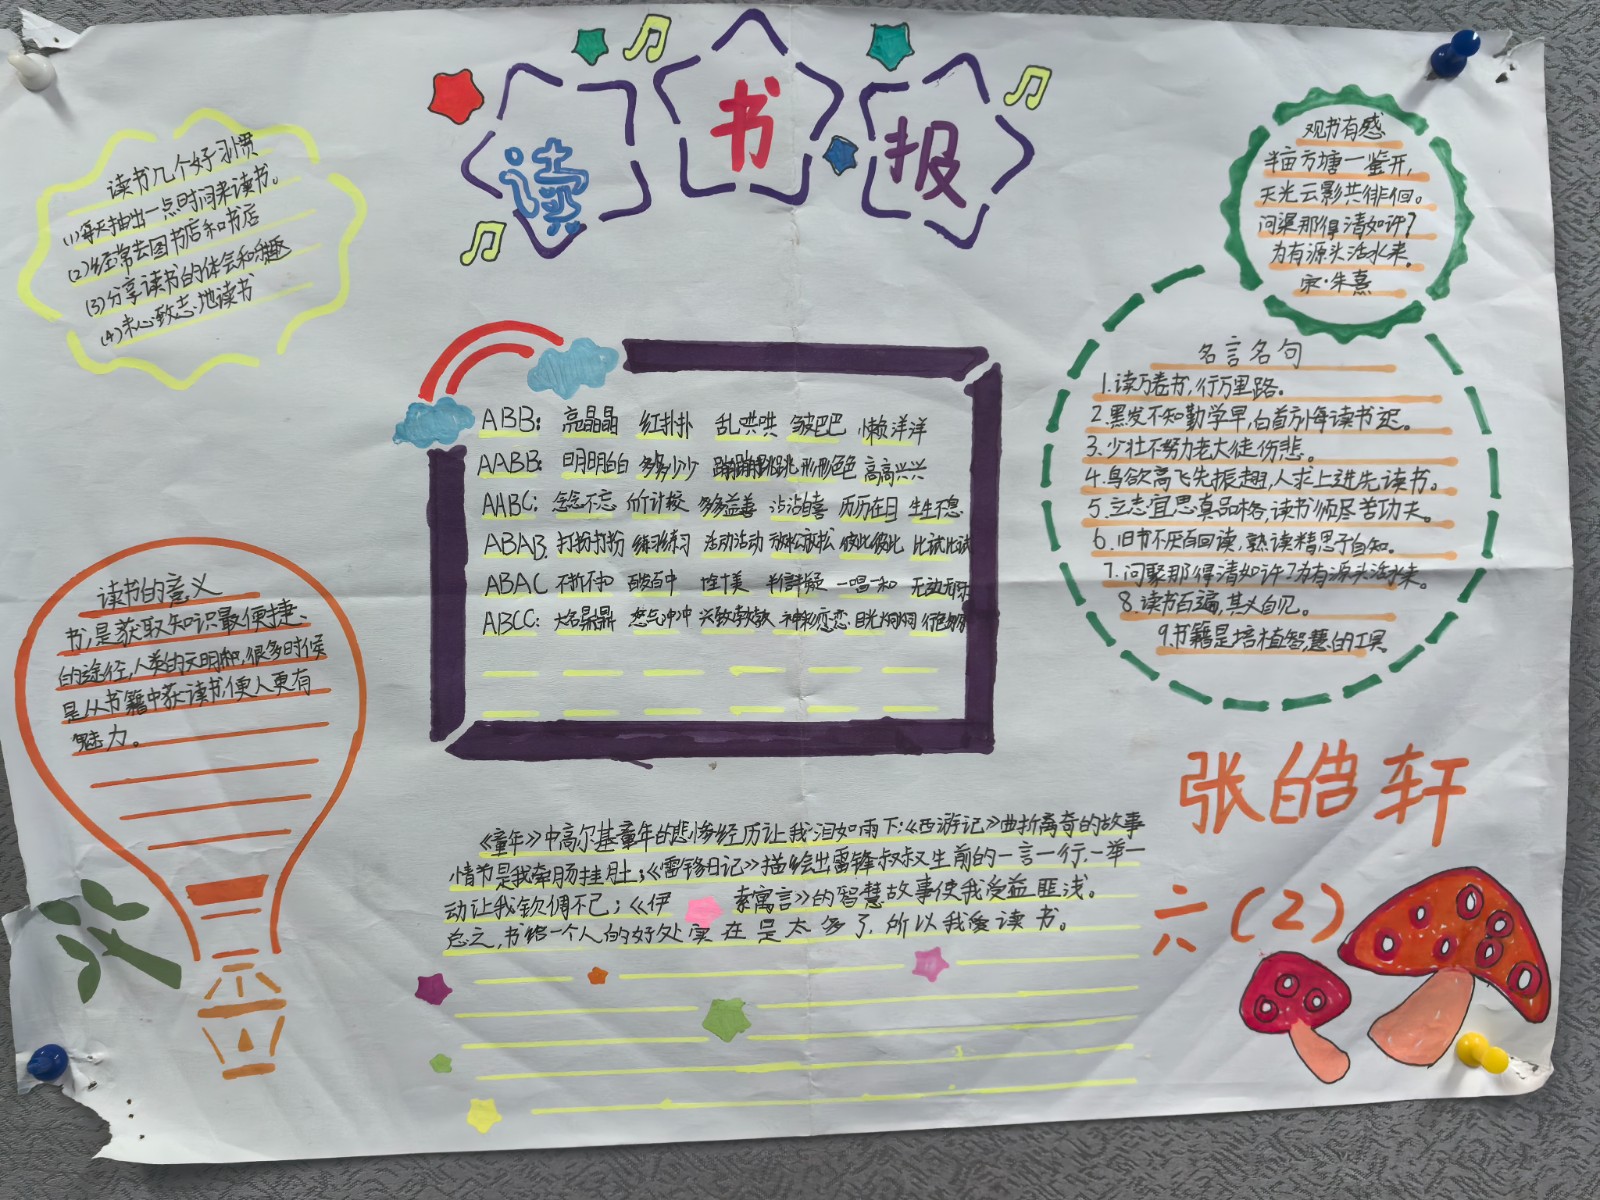 读书报
读书几个好习惯
(1)每天抽出一点时间来读书。
(2)经常去图书店和书店
(3)分享读书的体会和乐趣
(4)专心致志地读书
观书有感
半亩方塘一鉴开,
天光云影共徘徊。
问渠那得清如许?
为有源头活水来。
宋·朱熹
ABB: 亮晶晶 红扑扑 乱哄哄 皱巴巴 懒洋洋
AABB: 明明白白 多多少少 蹦蹦跳跳 形形色色 高高兴兴
AABC: 念念不忘 斤斤计较 多多益善 沾沾自喜 历历在目 生生不息
ABAB 打扮打扮 练习练习 活动活动 放松放松 彼此彼此 比试比试
ABAC 不折不扣 百发百中 十全十美 半信半疑 一唱一和 无边无际
ABCC: 大名鼎鼎 怒气冲冲 兴致勃勃 神彩奕奕 目光炯炯
名言名句
1.读万卷书,行万里路。
2.黑发不知勤学早,白首方悔读书迟。
3.少壮不努力老大徒伤悲。
4.鸟欲高飞先振翅,人求上进先读书。
5.立志宜思真品格,读书须尽苦功夫。
6.旧书不厌百回读,熟读精思子自知。
7.问渠那得清如许?为有源头活水来。
8.读书百遍,其义自见。
9.书籍是培植智慧的工具。
读书的意义
书,是获取知识最便捷、
的途径,人类的文明和,很多时候
是从书籍中获读书,使人更有
魅力。
《童年》中高尔基童年的悲惨经历让我泪如雨下;《西游记》曲折离奇的故事
情节是我牵肠挂肚;《雷锋日记》描绘出雷锋叔叔生前的一言一行,一举一
动让我钦佩不已;《伊索寓言》的智慧故事使我受益匪浅。
总之,书给一个人的好处实在是太多了,所以我爱读书。
张皓轩
六(2)